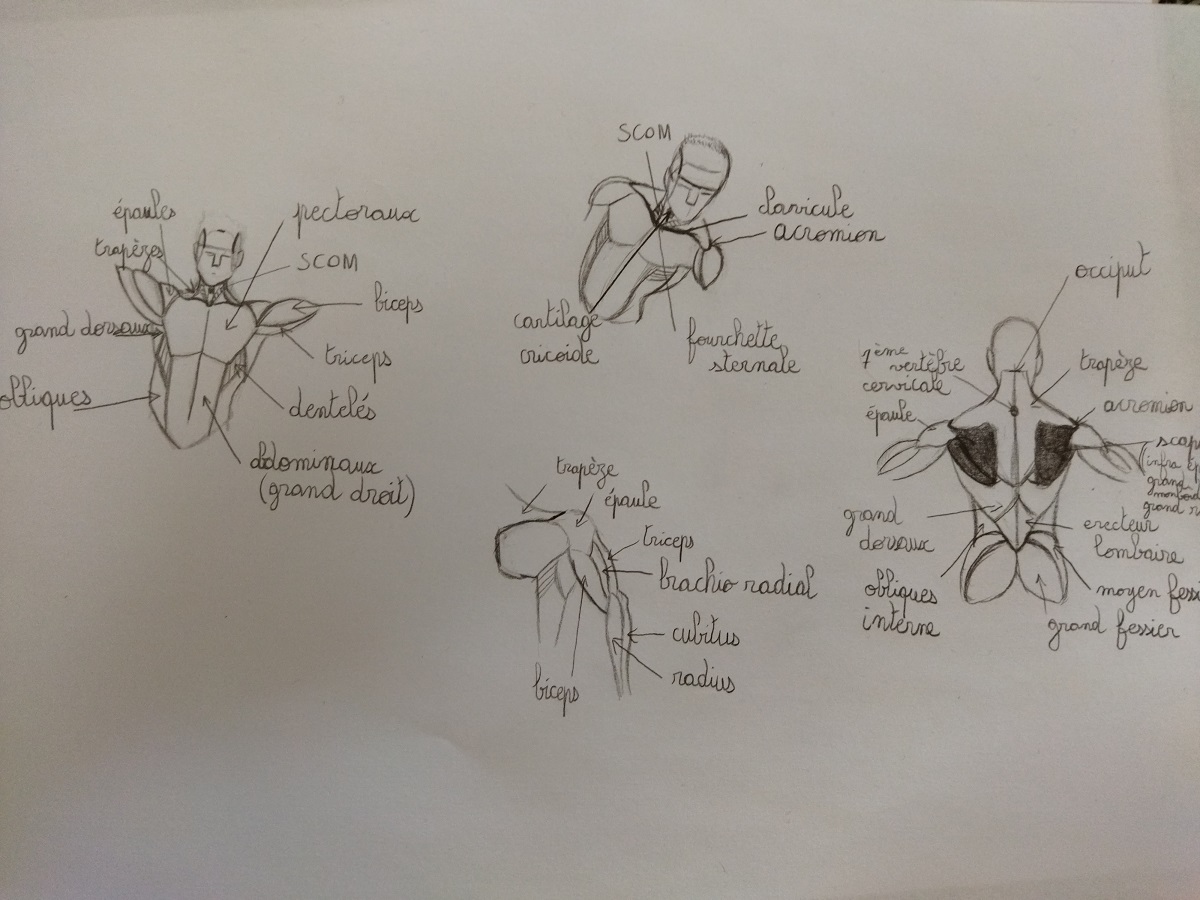 épaules
trapèzes
grand dorsaux
obliques
pectoraux
SCOM
biceps
triceps
dentelés
abdominaux
(grand droit)
SCOM
clavicule
acromion
cartilage
cricoïde
fourchette
sternale
trapèze
épaule
triceps
brachio radial
cubitus
radius
biceps
occiput
7ème
vertèbre
cervicale
épaule
trapèze
acromion
grand
dorsaux
obliques
interne
erecteur
lombaire
moyen fessi
grand fessier
scap
(infra ép
grand
grand r